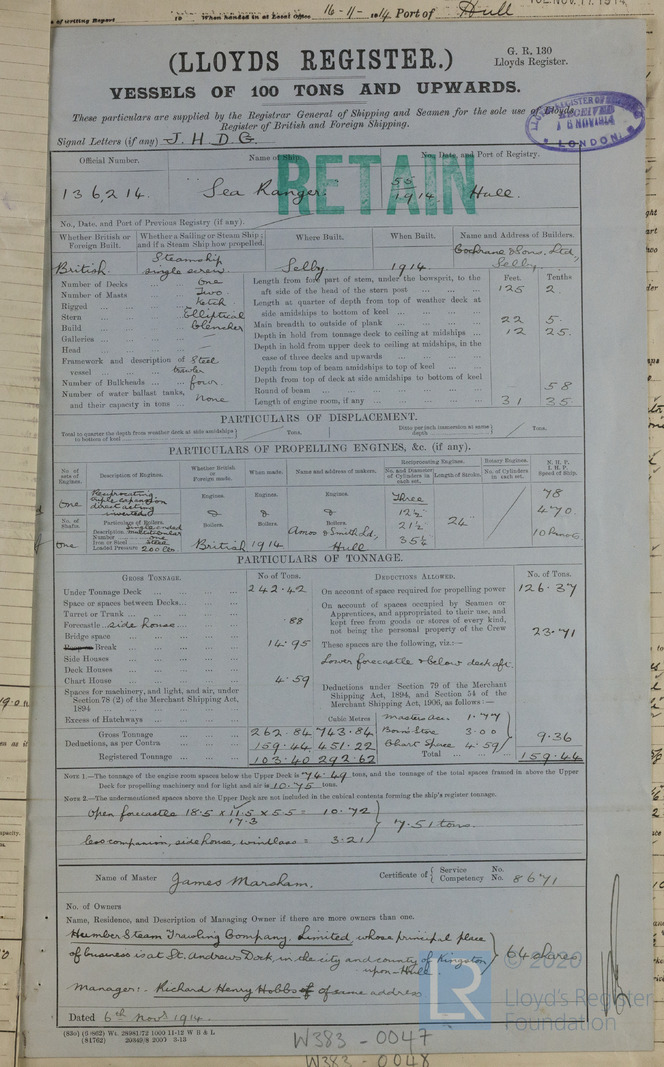 16-11-1914 Port of Hull
(LLOYDS REGISTER.)
G. R. 130
Lloyds Register.
VESSELS OF 100 TONS AND UPWARDS.
These particulars are supplied by the Registrar General of Shipping and Seamen for the sole use of Lloyds
Register of British and Foreign Shipping.
RECEIVED
LONDON
Signal Letters (if any) J. H. D. G.
RETAIN
Official Number. Name of Ship. No., Date, and Port of Registry.
136,214. Sea Ranger. 55/1914 Hull.
No., Date, and Port of Previous Registry (if any).
Whether British or Foreign Built. Whether a Sailing or Steam Ship; and if a Steam Ship how propelled. Where Built. When Built. Name and Address of Builders.
British. Steamship single screw. Selby. 1914. Cochrane & Sons, Ltd, Selby.
Number of Decks ... one
Number of Masts ... Two
Rigged ... Ketch
Stern ... Elliptical
Build ... Clencher
Galleries ...
Head ...
Framework and description of vessel ... Steel trawler
Number of Bulkheads ... four.
Number of water ballast tanks, and their capacity in tons ... None
Feet. Tenths
Length from fore part of stem, under the bowsprit, to the aft side of the head of the stern post 125 2
Length at quarter of depth from top of weather deck at side amidships to bottom of keel
Main breadth to outside of plank 22 5.
Depth in hold from tonnage deck to ceiling at midships 12 25.
Depth in hold from upper deck to ceiling at midships, in the case of three decks and upwards
Depth from top of beam amidships to top of keel
Depth from top of deck at side amidships to bottom of keel
Round of beam 58
Length of engine room, if any 31 35
PARTICULARS OF DISPLACEMENT.
Total to quarter the depth from weather deck at side amidships to bottom of keel Tons. Ditto per inch immersion at same depth Tons.
PARTICULARS OF PROPELLING ENGINES, &c. (if any).
No. of sets of Engines. Description of Engines. Whether British or Foreign made. When made. Name and address of makers. Reciprocating Engines. Rotary Engines. N. H. P. I. H. P. Speed of Ship.
No. and Diameter of Cylinders in each set. Length of Stroke. No. of Cylinders in each set.
one Reciprocating triple expansion direct acting inverted
Engines. Engines. Engines. Three
12½
21½
35½
24"
78
470
10 Knots.
No. of Shafts. Particulars of Boilers. Boilers. Boilers. Boilers.
Description Single ended multitubular
Number one
Iron or Steel Steel
Loaded Pressure 200 lbs
one British 1914 Amos & Smith Ld, Hull
PARTICULARS OF TONNAGE.
GROSS TONNAGE. No. of Tons. DEDUCTIONS ALLOWED. No. of Tons.
Under Tonnage Deck 242.42
Space or spaces between Decks
Turret or Trunk
Forecastle side house .88
Bridge space
Break 14.95
Side Houses
Deck Houses
Chart House 4.59
Spaces for machinery, and light, and air, under Section 78 (2) of the Merchant Shipping Act, 1894
Excess of Hatchways
Cubic Metres
Gross Tonnage 262.84 743.84
Deductions, as per Contra 159.44 451.22
Registered Tonnage 103.40 292.62
On account of space required for propelling power 126.37
On account of spaces occupied by Seamen or Apprentices, and appropriated to their use, and kept free from goods or stores of every kind, not being the personal property of the Crew 23.71
These spaces are the following, viz:—
Lower forecastle & below deck aft.
Deductions under Section 79 of the Merchant Shipping Act, 1894, and Section 54 of the Merchant Shipping Act, 1906, as follows:—
Masters acc. 1.77
Bosn's Store 3.00
Chart Space 4.59
9.36
Total 159.44
NOTE 1.—The tonnage of the engine room spaces below the Upper Deck is 74.49 tons, and the tonnage of the total spaces framed in above the Upper
Deck for propelling machinery and for light and air is 10.75 tons.
NOTE 2.—The undermentioned spaces above the Upper Deck are not included in the cubical contents forming the ship's register tonnage.
Open forecastle 18.5 x 11.5 x 5.5 = 10.72
17.3
7.51 tons.
less companion, side house, windlass = 3.21
Name of Master James Marsham. Certificate of Service No. Competency No. 8671
No. of Owners
Name, Residence, and Description of Managing Owner if there are more owners than one.
Humber Steam Trawling Company, Limited, whose principal place
of business is at St. Andrews Dock, in the city and county of Kingston 64 shares
upon-Hull.
Manager:- Richard Henry Hobbs of same address
© 2020
Lloyd's Register
Foundation
LR
Dated 6th Novr 1914.
W383-0047
W383-0048